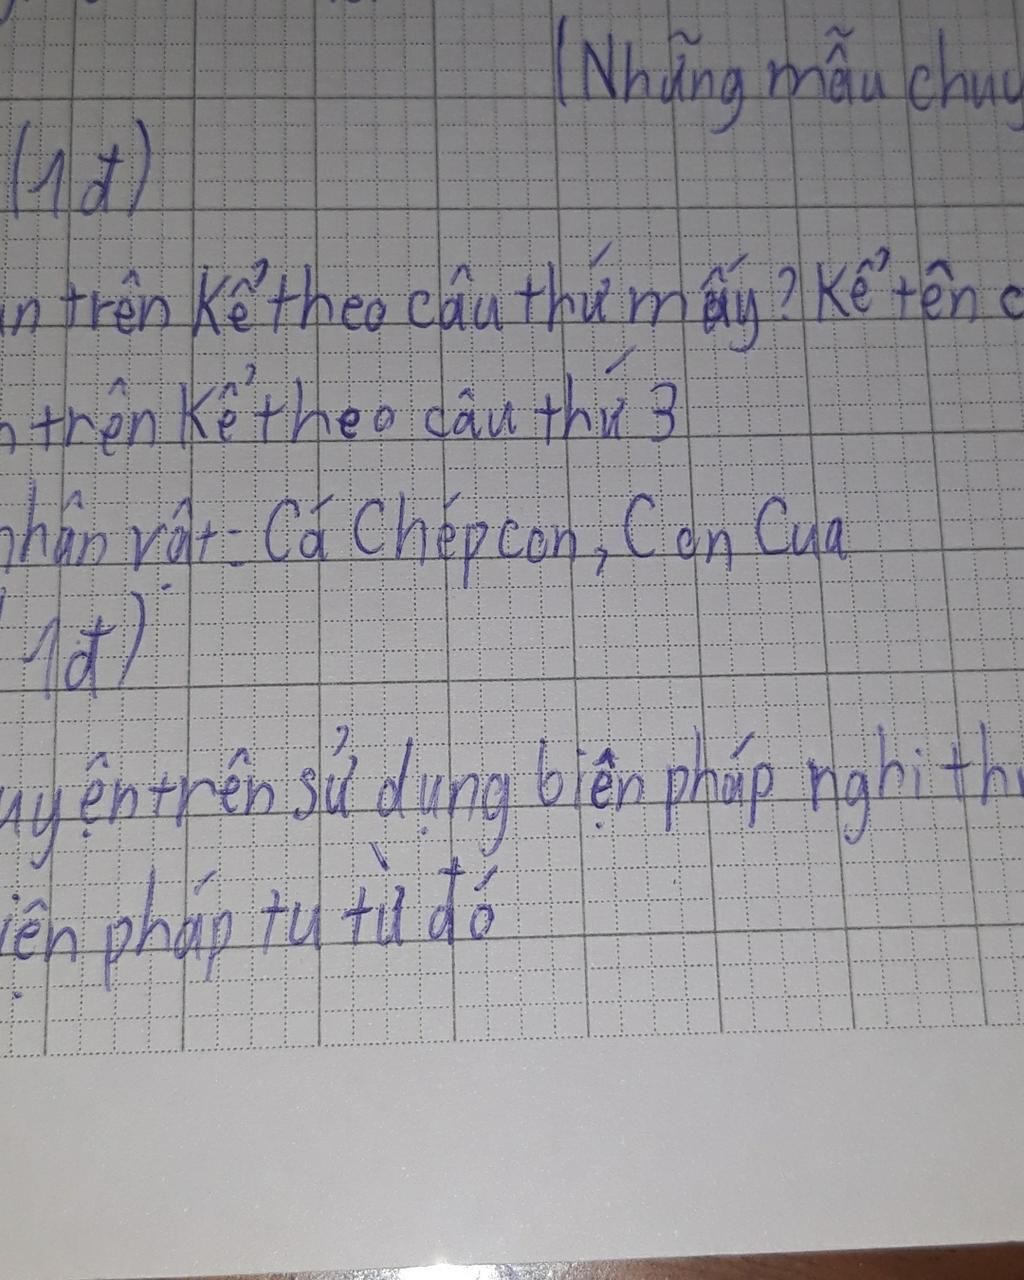 (Những mẫu chuy
(1đ)
n trên Kể theo câu thứ mấy? Kể tên c
n trên Kể theo câu thứ 3
nhân vật: Cá Chép con, Con Cua
1đ)
uyện trên sử dụng biện pháp nghi th
iện pháp tu từ đó